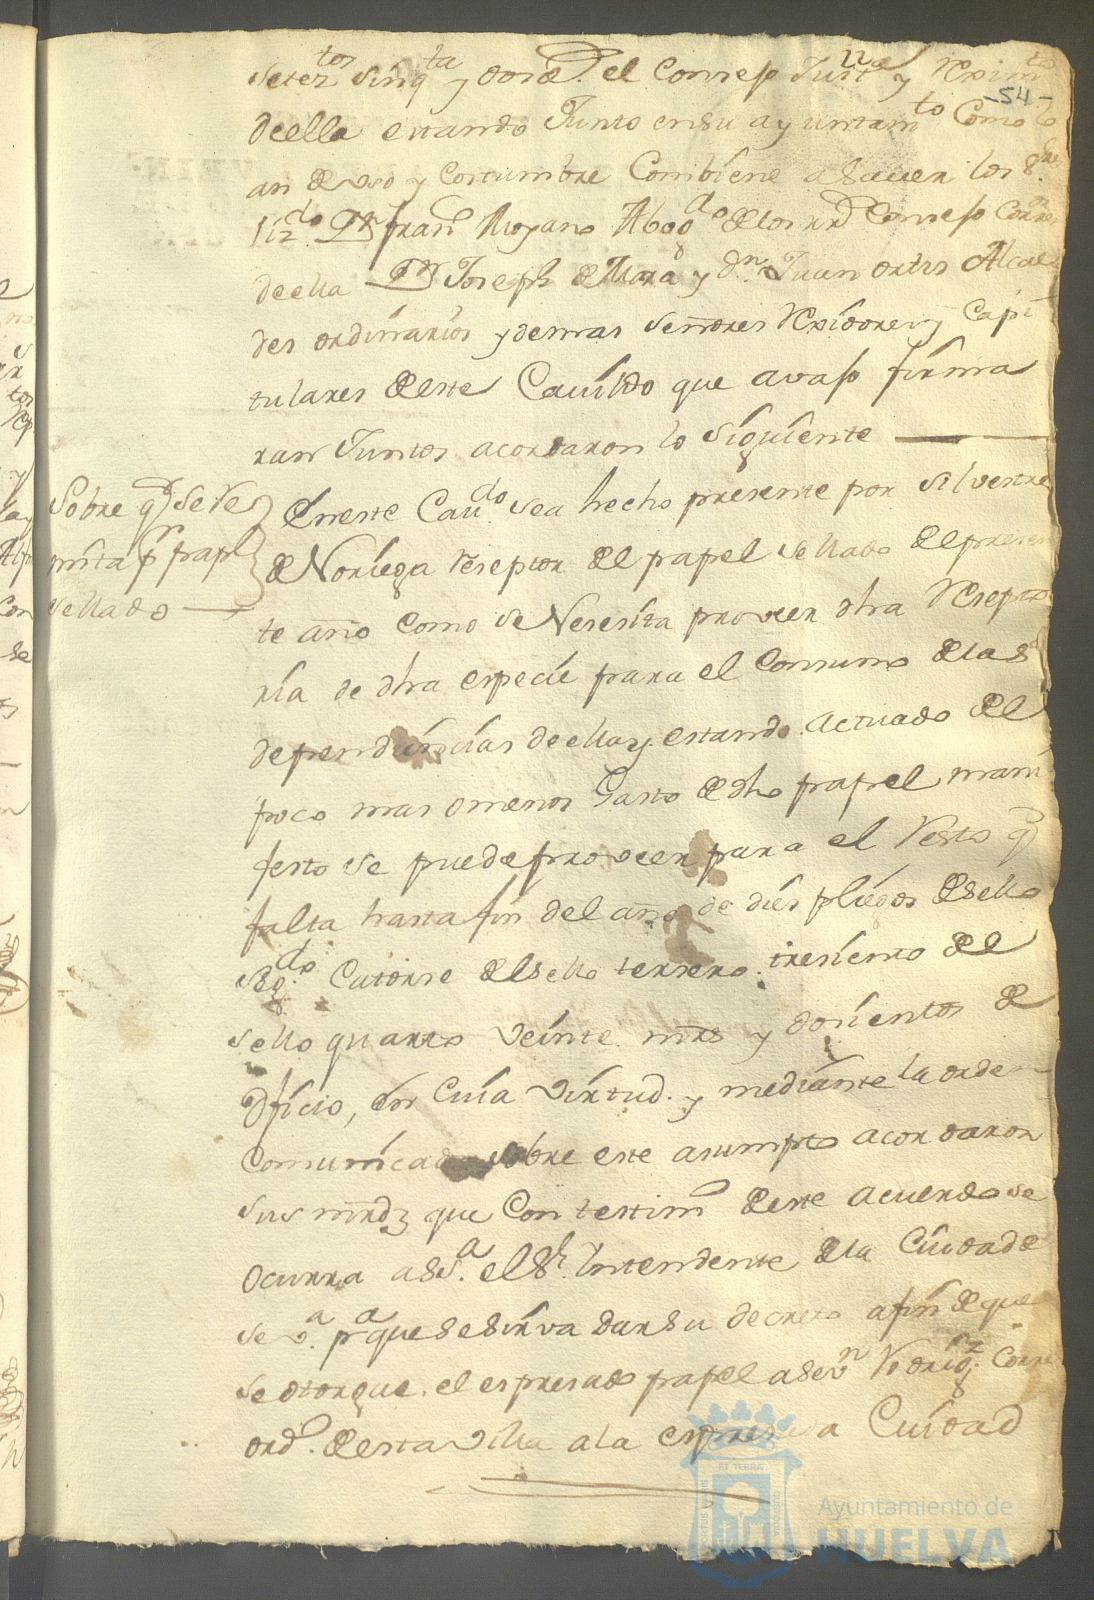 setez.tos sinq.ta y dos a. el Consejo Just.a y Reximi.to
-54-
de ella estando Junto en su ayuntam.to Como lo
an de uso y Costumbre Combiene a saver los S.res
liz.do Dn fran.co Moyano Abog.do de los rr.s Consejos Corr.or
de ella Dn Joseph de Mora y d.n Juan ortis Alcal
des ordinarios y demas señores Rexidores y Capi
tulares de este Cavildo que avajo firma
ran Juntos acordaron lo siguiente
Sobre q.e se Re
mita p.r papl
sellado
En este Cav.do se a hecho presente por silvestre
de Noriega reseptor del papel sellado del presen
te año como se Nesesita proveer otra Resepto
ria de dha especie para el Consumo de las
dependiencias de ella y estando actuado el
poco mas o menos Gasto de dho papel mani
festo se puede proveer para el Resto q.e
falta hasta fin del año de dies pliegos de sello
seg.do Catorse del sello tersero. tresiento del
sello quarto veinte mrs y dosientos de
Oficio, en Cuia virtud. y mediante la orden
Comunicada sobre este asumpto acordaron
sus mrdz que Con testim.o de este acuerdo se
ocurra a su s.a el S.r Intendente de la Ciudad de
sev.a p.a que se sirva dar su decreto a fin de que
se otorgue. el espresado papel a sev.n Rodrig.z Corre
ord.o de esta Villa a la espresada Ciudad
Ayuntamiento de
HUELVA